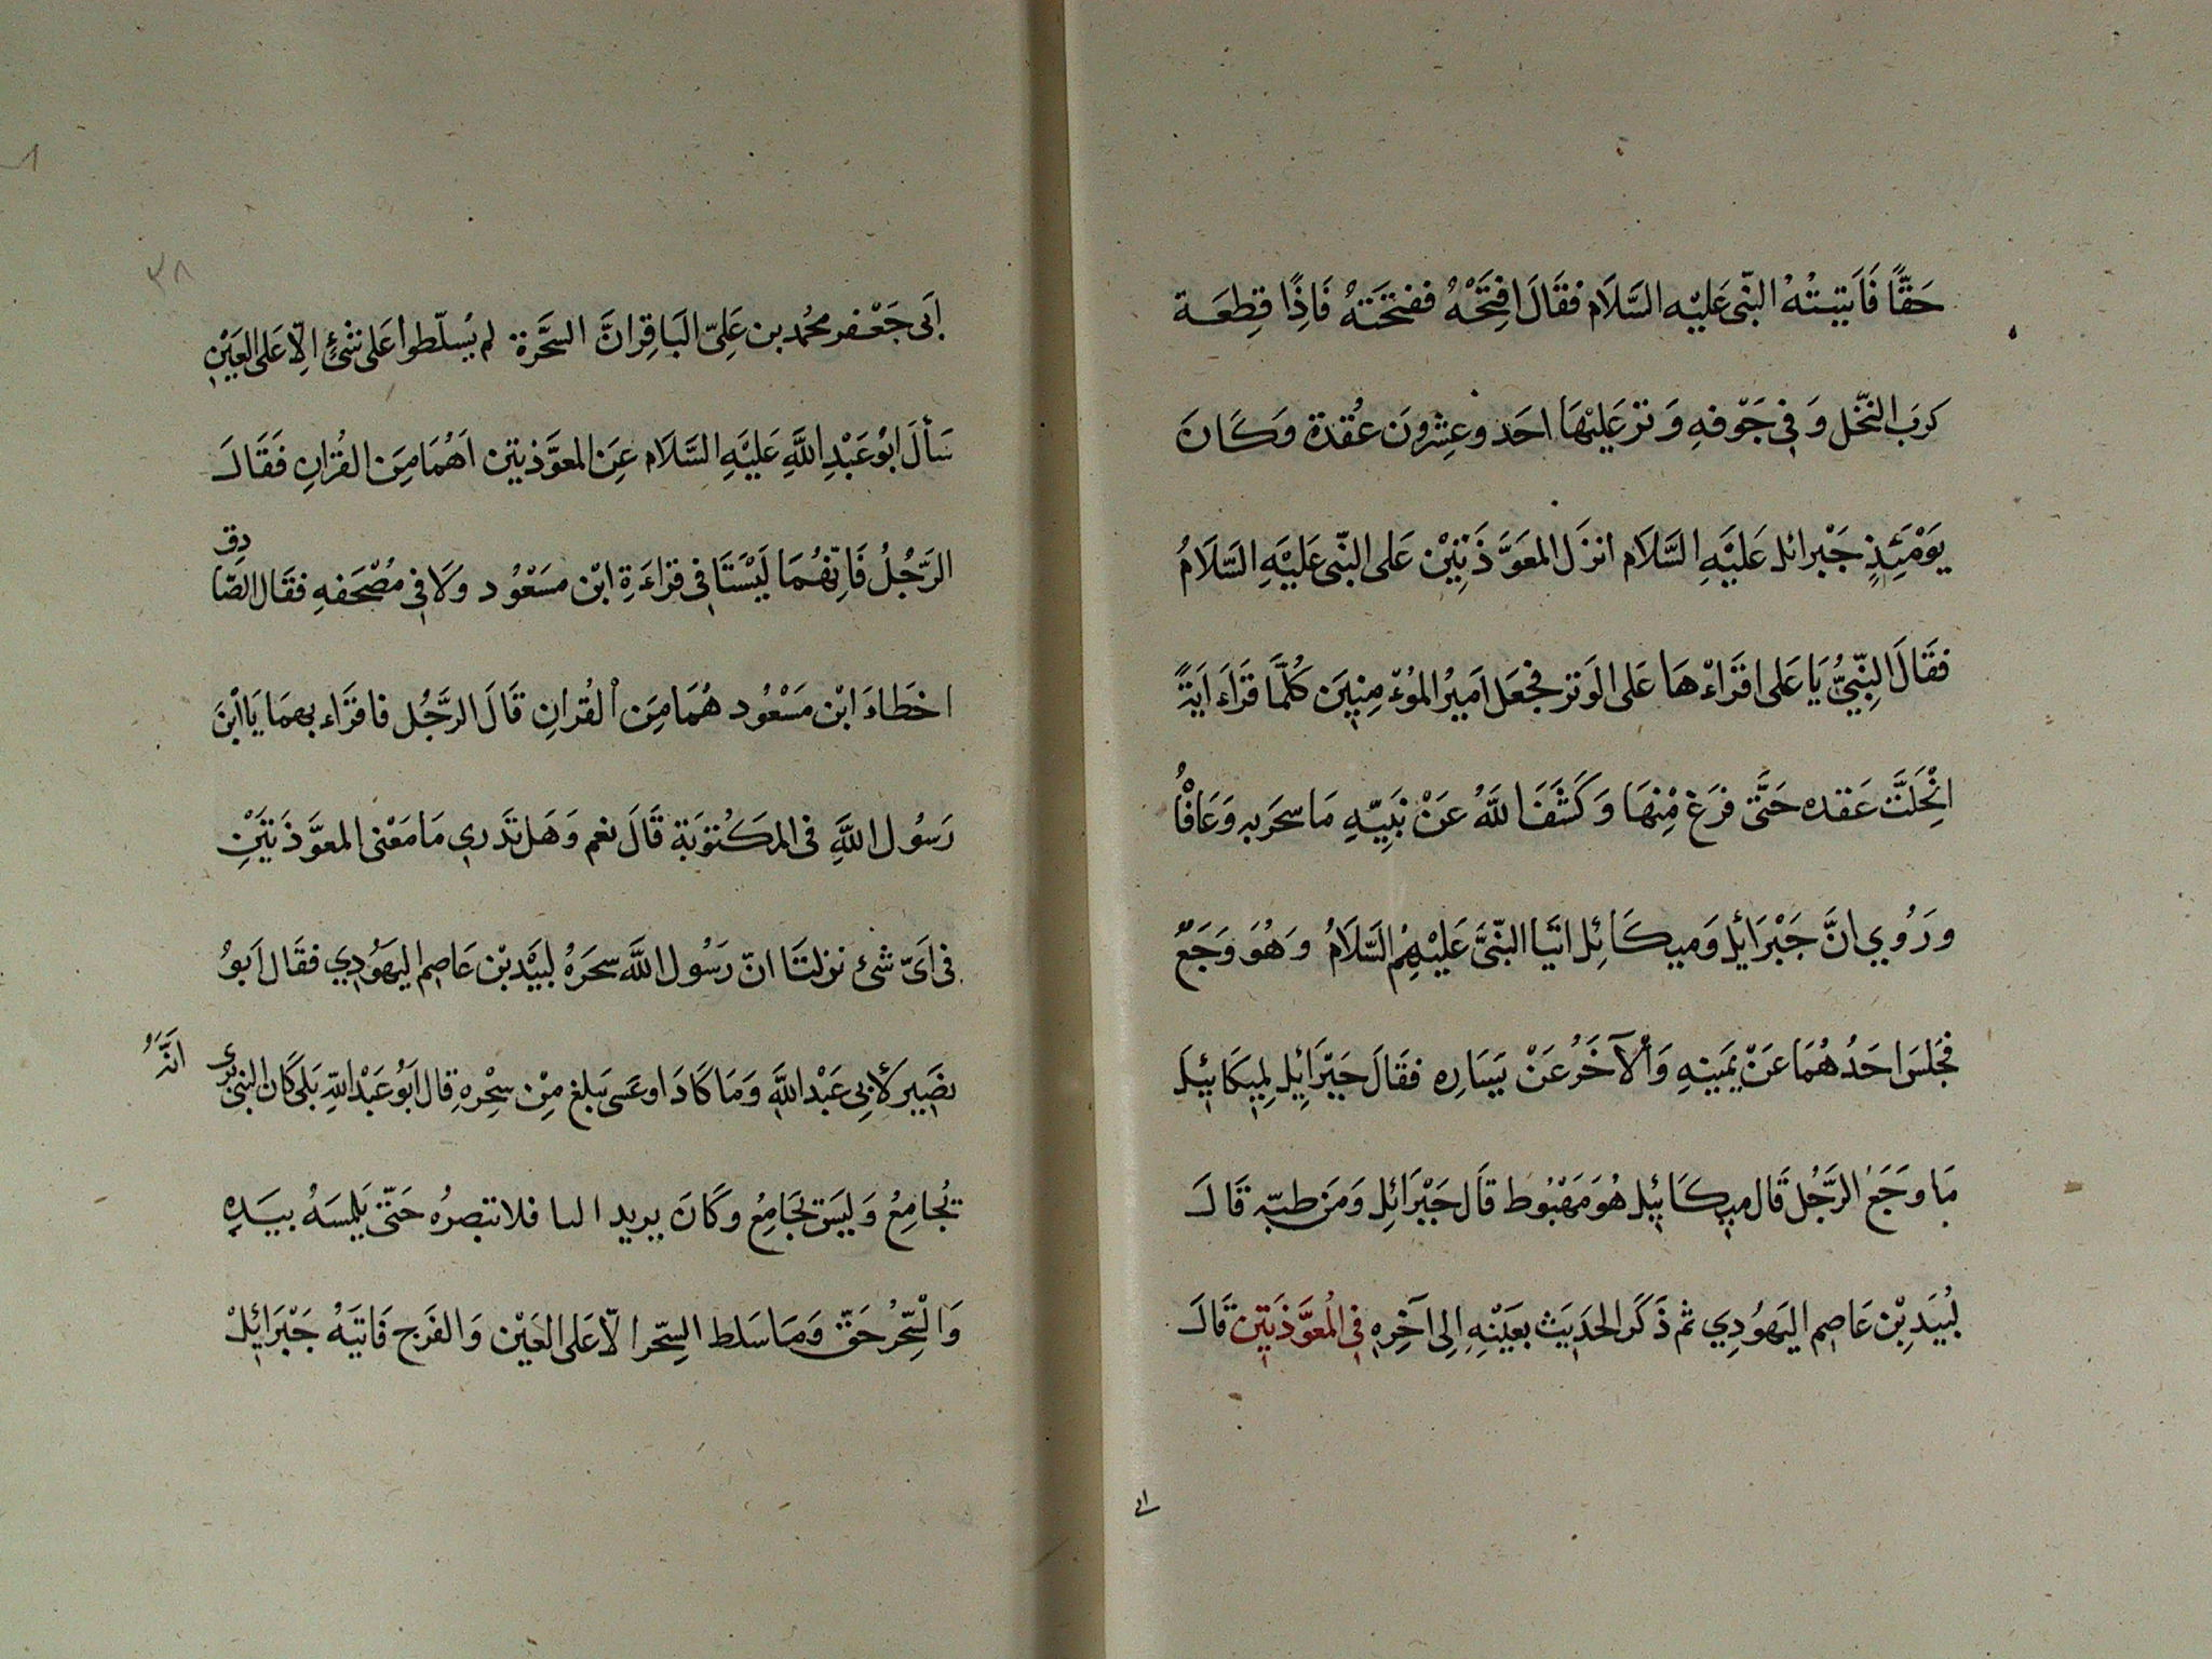 حَقًّا فَاَتَيْتُهُ النّبى عَليْه السَّلَام فقَالَ افتَحْهُ ففتحَتهُ فَاِذًا قِطِعَة
كرَب النخّل وَ فِى جَوْفهِ وَتر عَليْهَا احَد وعِشرونَ عُقدة وَكَانَ
يَوْمَئِذٍ جَبْرائل عَليْهِ السَّلاَم انزَل المعَوَّذَتِيْن عَلى النّبى عَليْهِ السَّلَامُ
فقَالَ النَّبِيُّ يَا عَلى اقرَاءْهَا عَلى الوَتر فجعَل اَميرُ الموُءْمِنينَ كُلَّمَا قرَاءَ ايَةً
انْحِلَتَّ عَقده حَتَّى فرَغ مْنِهَا وَكَشَفَ اللهُ عَنْ نَبِيّهِ مَا سحَربه وَعَافَاُ
ورَوُي انَّ جَبْرَايْل وَميكَائِل اتَيا النّبىَّ عَليْهِمُ السَّلَامُ وَهُوَ وَجَعٌ
فجَلسَ احَدُهُمَا عَنْ يَمينهِ وَالْآخَرُ عَنْ يَسَاره فقَالَ جَبَرْائِل لِميكَائيْل
مَا وَجَعْ الرَّجُل قَال ميكَائيْل هُوَ مَقبُوط قَال جَبْرَائِل وَمَن طبّه قَالَ
لُبيَدِبْن عَاصِم اليَهوُدِي ثم ذَكَر الحَديَث بعَيْنِهِ اِلى آخِره فى المُعَوَّذَتيَن قَالَ
لى
٣٨
اَبى جَعْفر محُمد بن عَلِىّ البَاقِر انَّ السَّحَرة لم يُسلّطوا عَلى شئٍ الّا عَلى العَيْنِ
سَألَ ابوُ عَبْدِ اللَّهِ عَليْهِ السَّلَام عَن المعوَّذتين اَهُمَا مِنَ القرانِ فَقَالَ
الرَّجُلُ فَانّهُمَا لَيْسَتَا فى قرَاءَةِ ابْن مسَعْوُد وَلَا فى مُصْحَفهِ فقَال الصَّادِق
اخطَاءَ ابْن مَسْعُود هُمَا مِنَ الْقُرانِ قَالَ الرَّجُل فاقرَاء بهمَا يَا ابْنَ
رَسوُل اللَّهِ فى المَكْتوُبَة قَالَ نعم وَهَل تدَري مَا مَعْنى المعوَّذَتيَنِ
فى اَىّ شئ نزلتَا انّ رَسوُل اللَّه سحَرَهُ لبيَدْ بْن عَاصِم اليَهوُدِي فقَال اَبوُ
بصَير لأبِى عَبْد اللَّهِ وَمَا كَادَ اوعَسى يَبلغ مِنْ سِحْرهِ قال اَبوُ عَبْد اللّهِ بَلى كَان النبى يَرى انَّهُ
يُجامِعُ وَليَسَ يجَامِعُ وكَانَ يريد البا فلا تبصرُه حَتّى يَلمسَهُ بيَدِه
وَالْسِّحْرُ حَقّ وَمَا سَلط السِّحر الّا عَلى العَيْن وَالفَرج فَاتَيَهُ جَبْرَايْل